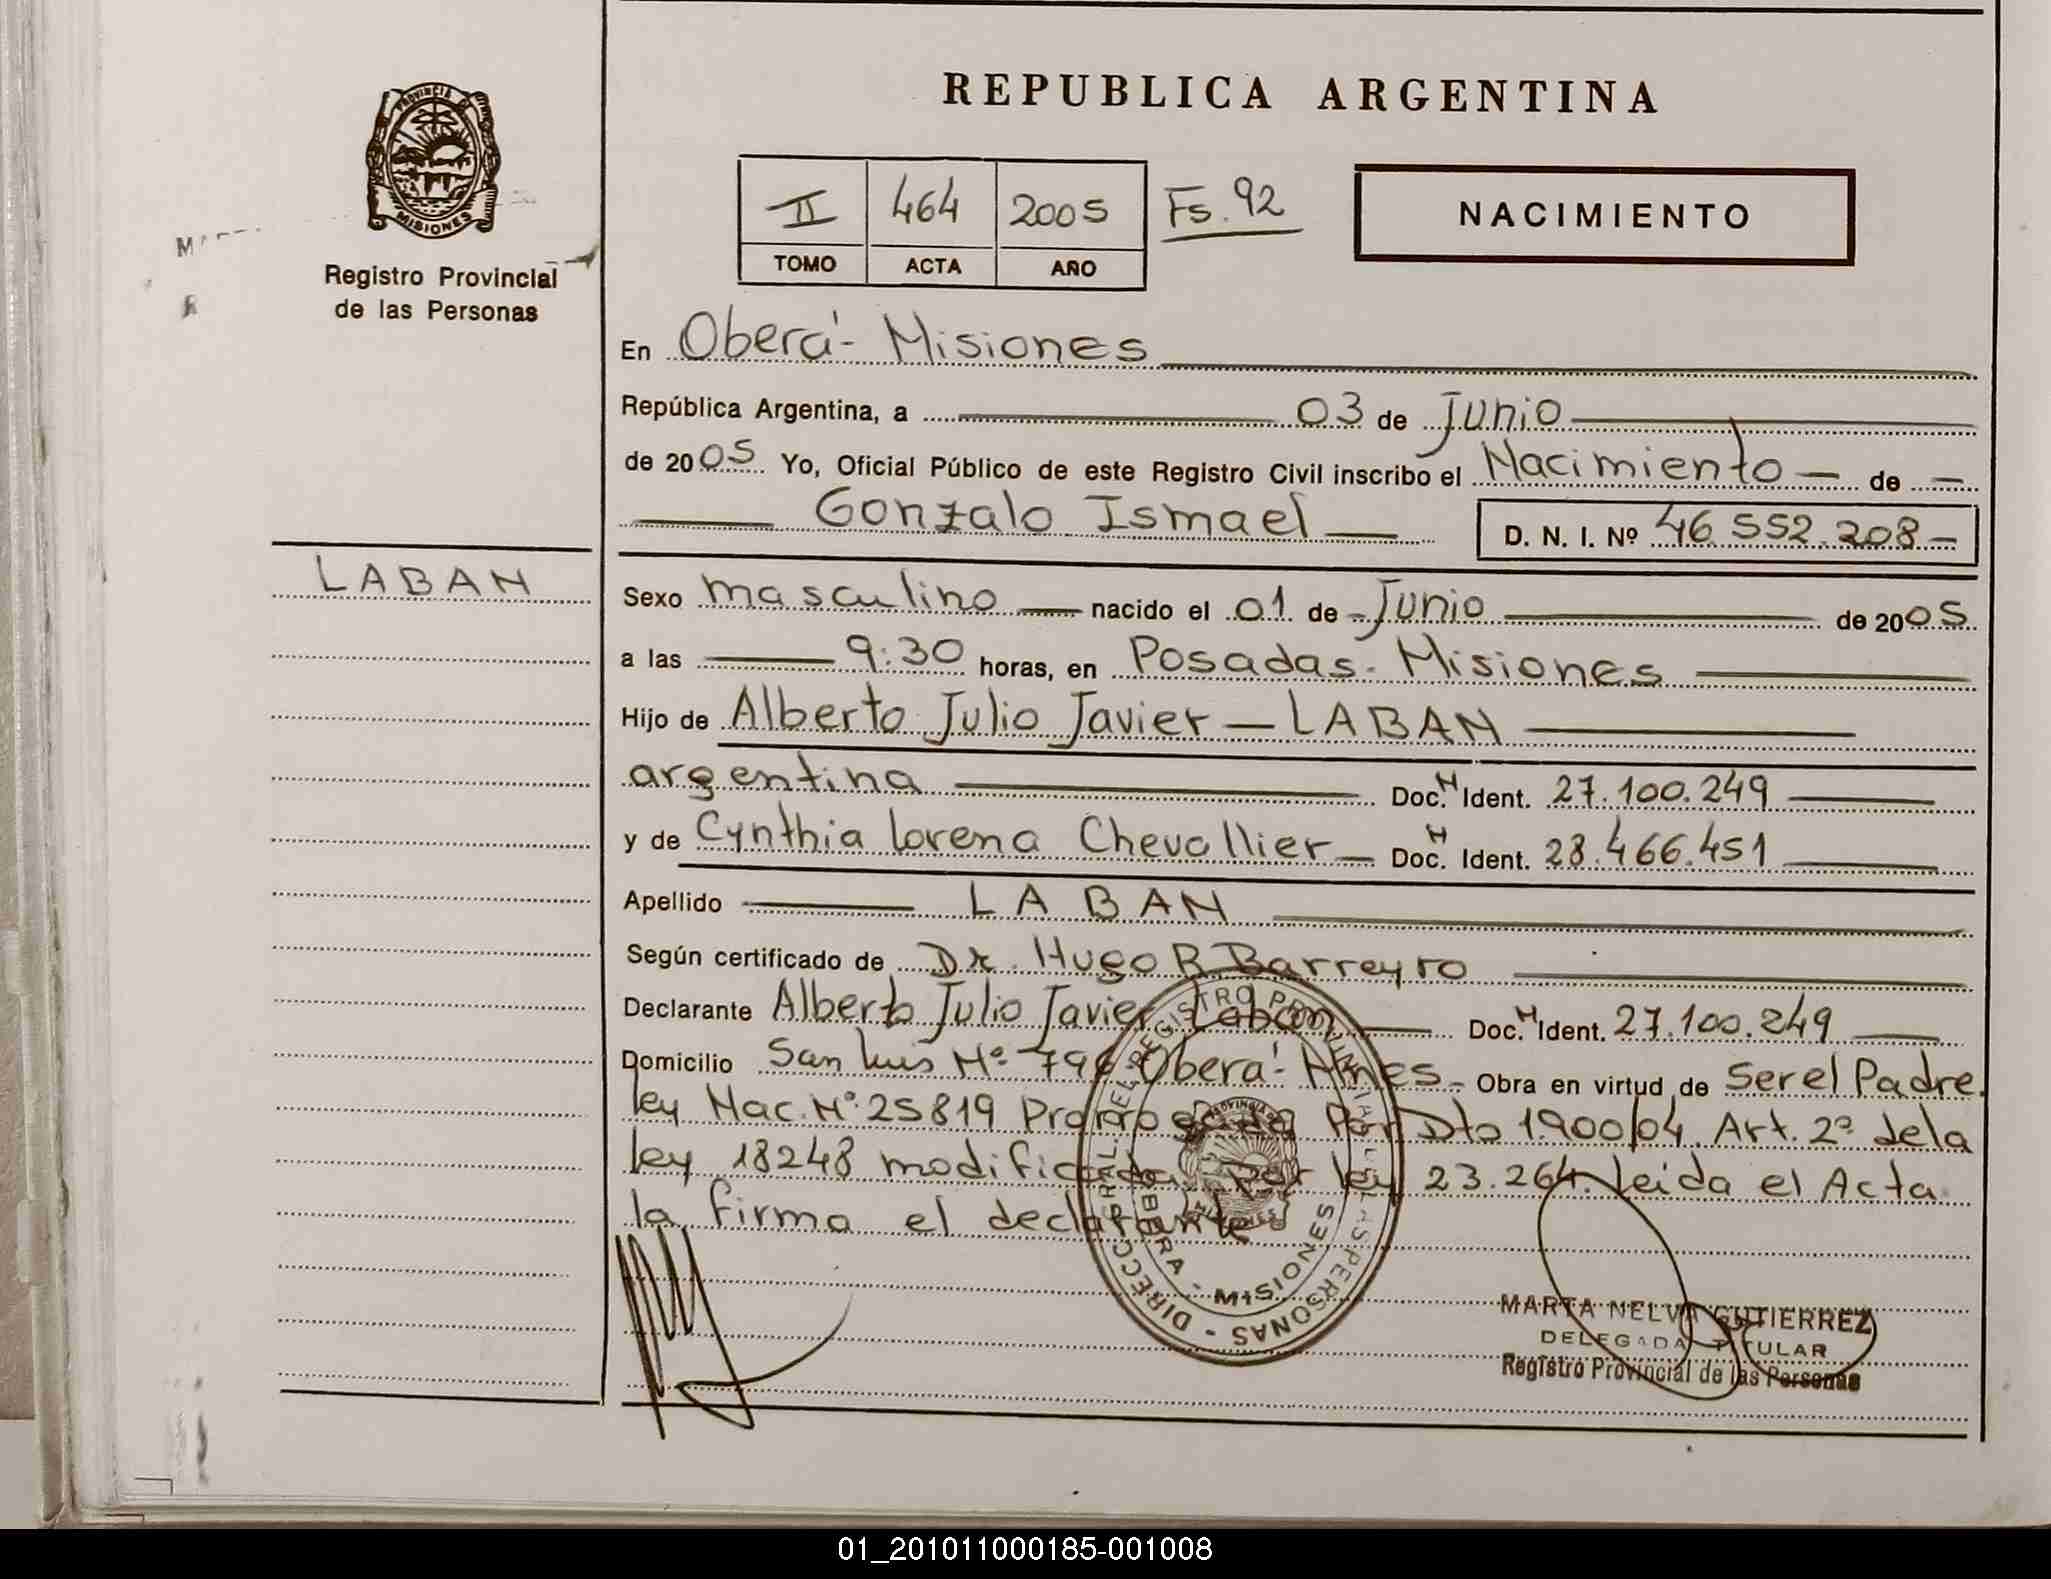 REPUBLICA ARGENTINA
PROVINCIA DE
MISIONES
Registro Provincial
de las Personas
II 464 2005 Fs. 92
TOMO ACTA AÑO
NACIMIENTO
En Oberá - Misiones
República Argentina, a 03 de Junio
de 2005 Yo, Oficial Público de este Registro Civil inscribo el Nacimiento — de —
Gonzalo Ismael — D. N. I. Nº 46.552.208 —
LABAN
Sexo masculino — nacido el 01 de Junio — de 2005
a las — 9:30 horas, en Posadas - Misiones —
Hijo de Alberto Julio Javier — LABAN —
argentina — Doc. N Ident. 27.100.249 —
y de Cynthia Lorena Chevallier — Doc. N Ident. 28.466.451 —
Apellido — LABAN —
Según certificado de Dr. Hugo R Barreyro —
Declarante Alberto Julio Javier Laban — Doc. N Ident. 27.100.249 —
Domicilio San Luis Nº 796 Oberá - Mnes - Obra en virtud de Ser el Padre.
ley Nac. Nº 25819 Prorrogada Por Dto 1900/04. Art. 2º de la
ley 18248 modificada por ley 23.264. Leida el Acta
la firma el declarante
MARTA NELVA GUTIERREZ
DELEGADA TITULAR
Registro Provincial de las Personas
01_201011000185-001008